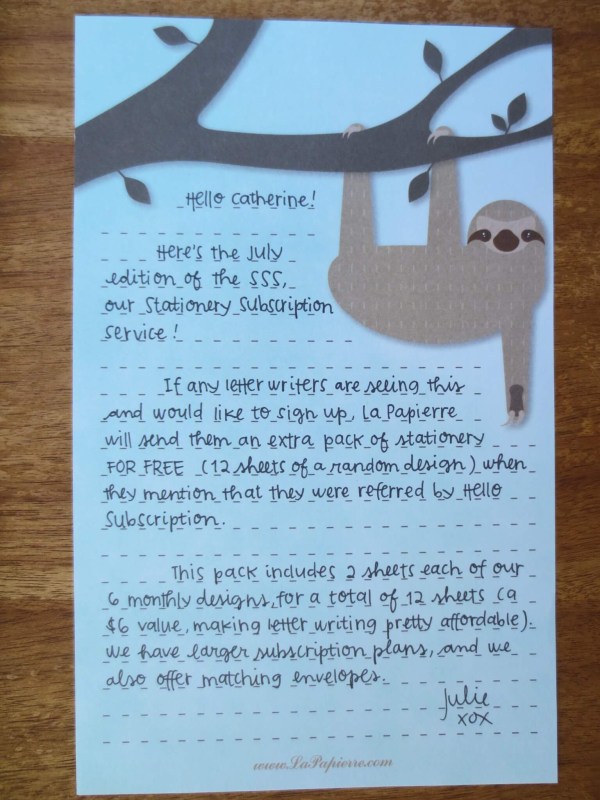 Hello Catherine!
Here's the July
edition of the SSS,
our Stationery Subscription
Service!
If any letter writers are seeing this
and would like to sign up, La Papierre
will send them an extra pack of stationery
FOR FREE (12 sheets of a random design) when
they mention that they were referred by Hello
Subscription.
This pack includes 2 sheets each of our
6 monthly designs, for a total of 12 sheets (a
$6 value, making letter writing pretty affordable).
We have larger subscription plans, and we
also offer matching envelopes.
Julie
xox
www.LaPapierre.com